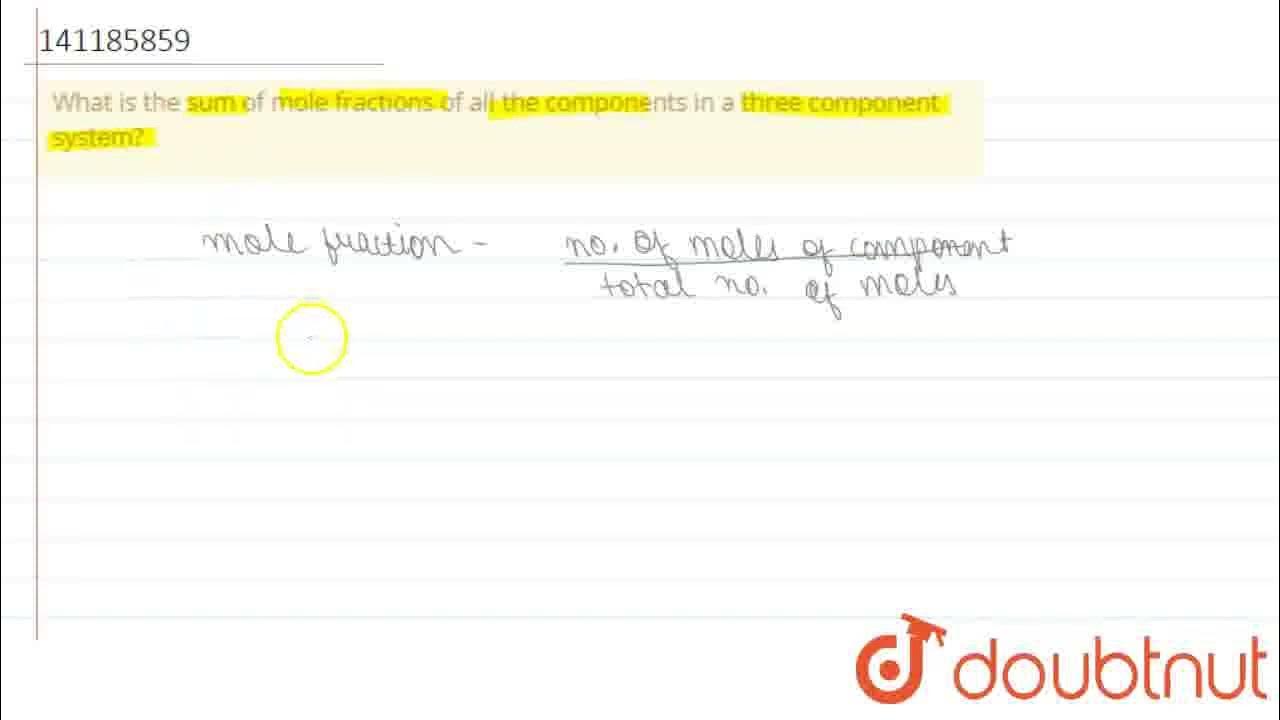 141185859
What is the sum of mole fractions of all the components in a three component
system?
mole fraction - no. of moles of component
total no. of moles
doubtnut